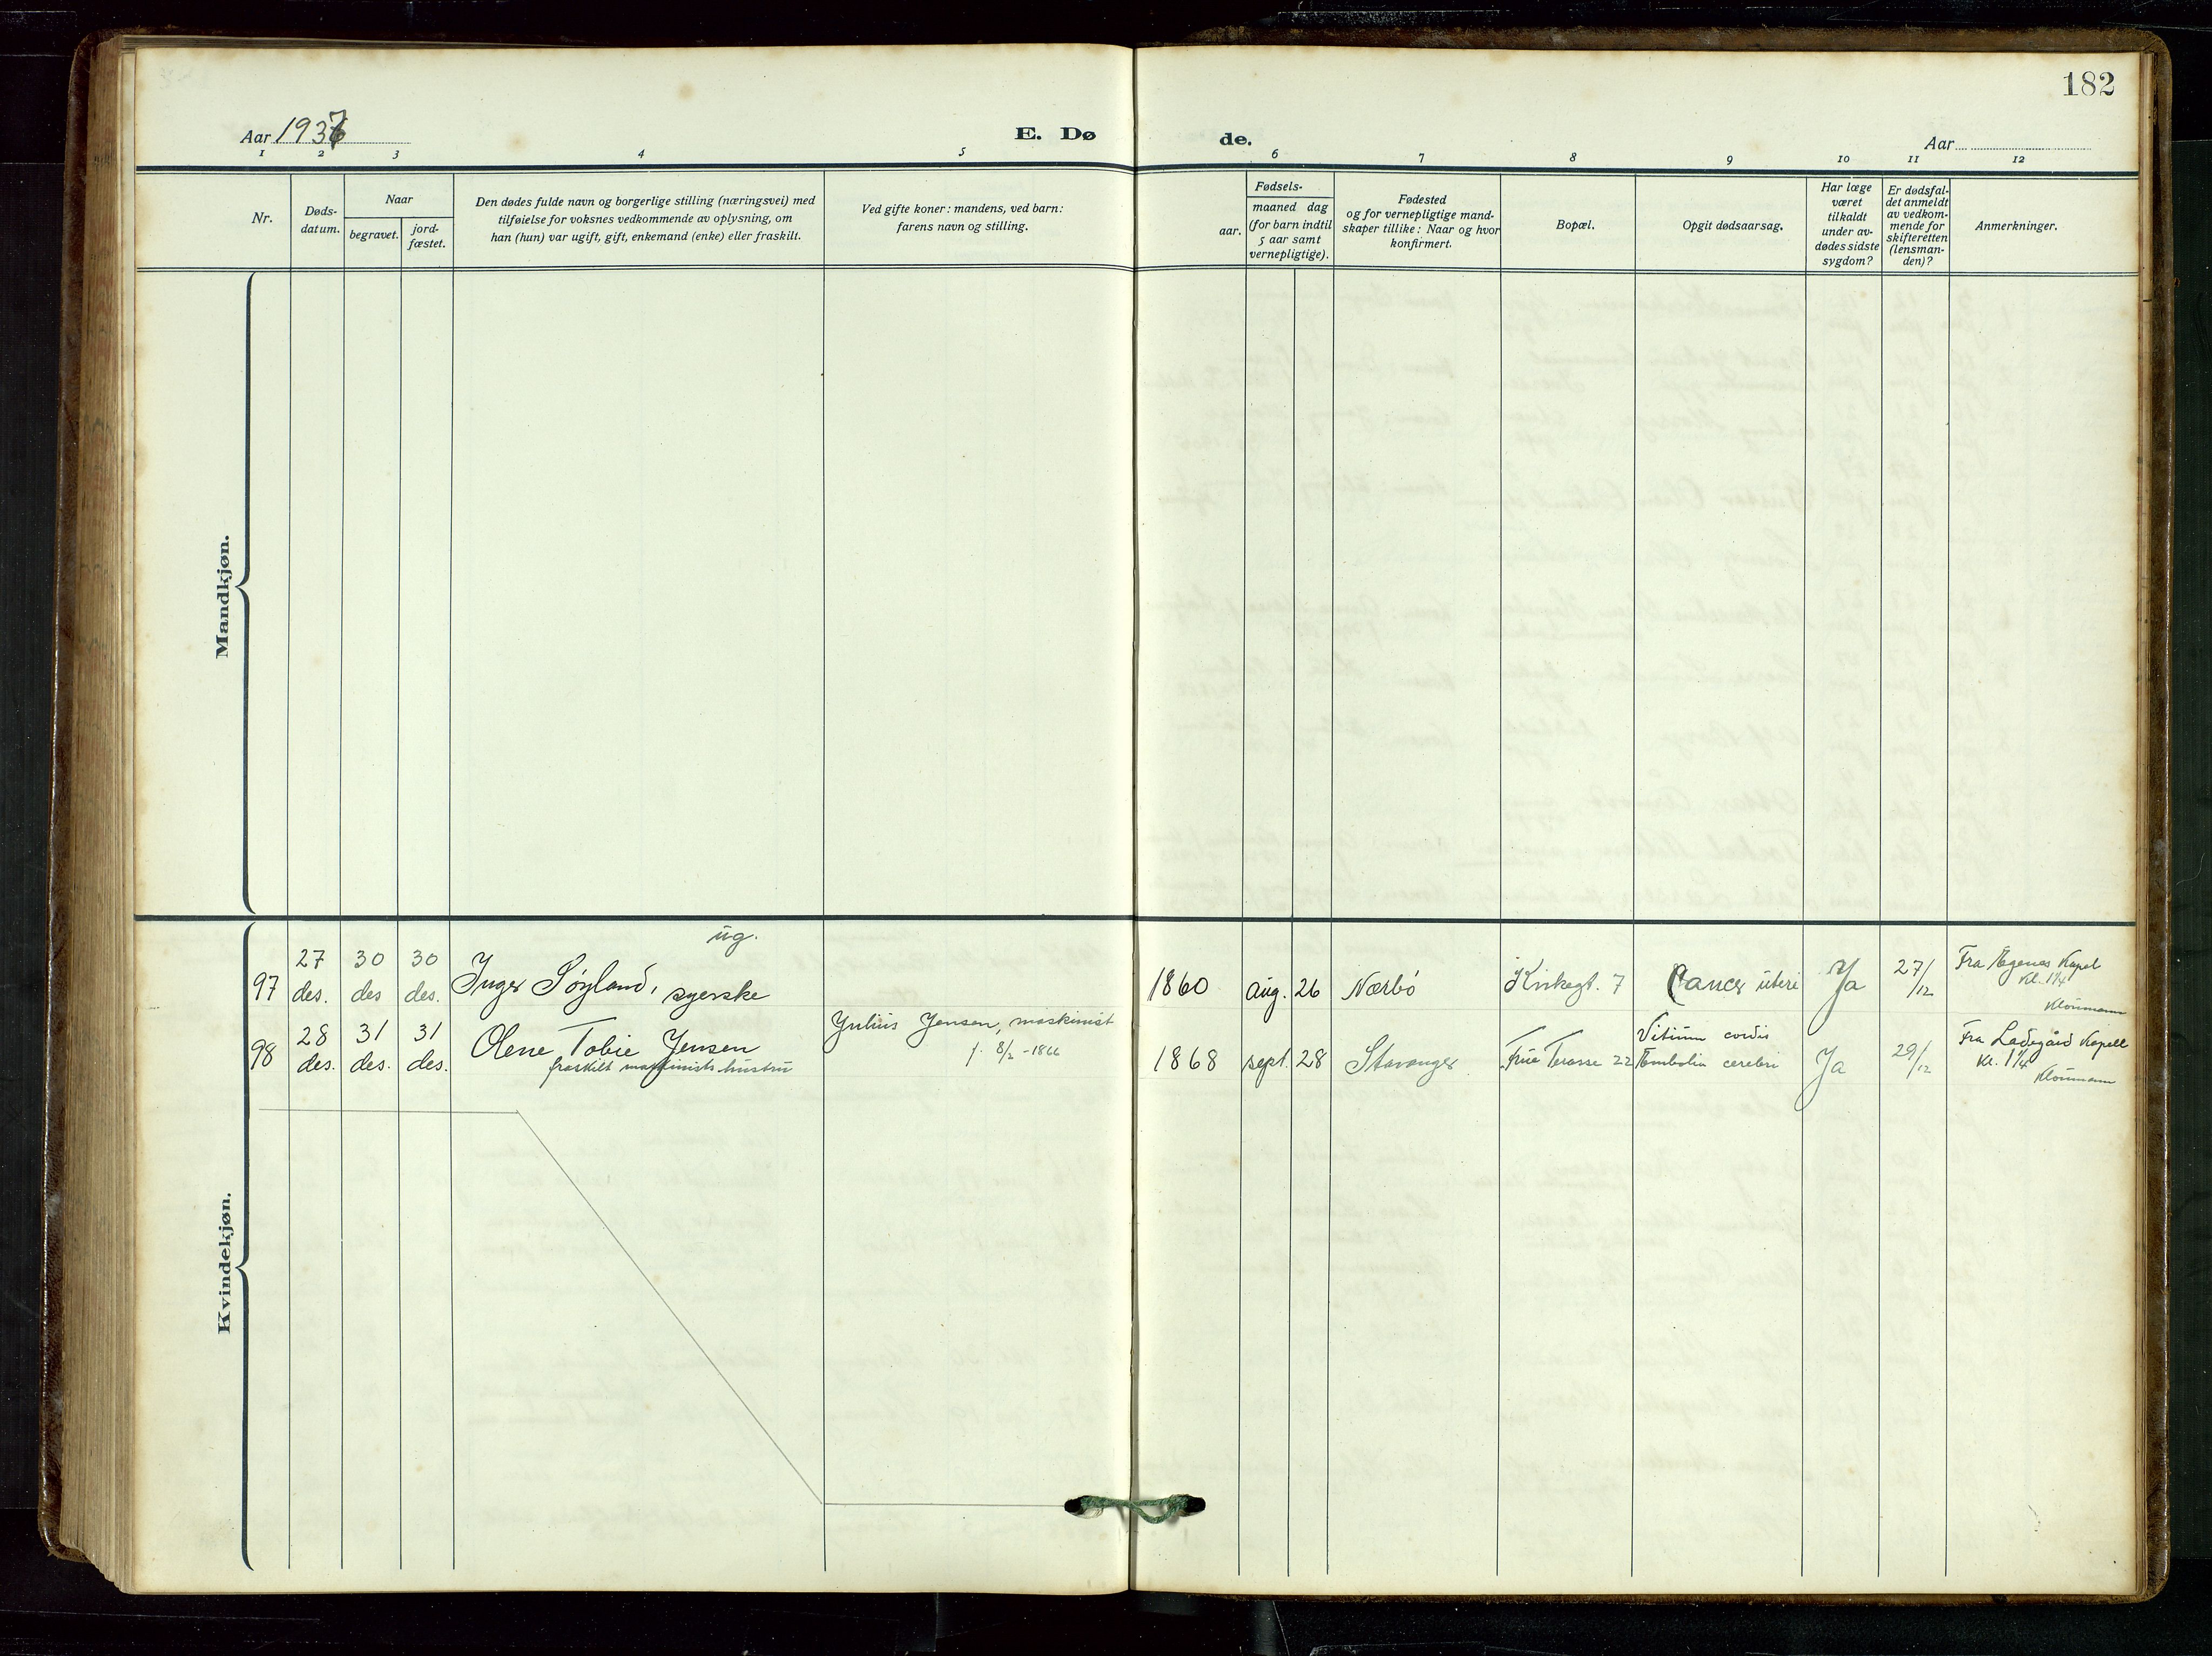 182
Aar 1936
E. Dø
de.
Aar
1 2 3 4 5 6 7 8 9 10 11 12
Nr.
Døds-
datum.
Naar
begravet.
jord-
fæstet.
Den dødes fulde navn og borgerlige stilling (næringsvei) med
tilføielse for voksnes vedkommende av oplysning, om
han (hun) var ugift, gift, enkemand (enke) eller fraskilt.
Ved gifte koner: mandens, ved barn:
farens navn og stilling.
Fødsels-
aar.
maaned dag
(for barn indtil
5 aar samt
vernepligtige).
Fødested
og for vernepligtige mand-
skaper tillike: Naar og hvor
konfirmert.
Bopæl.
Opgit dødsaarsag.
Har læge
været
tilkaldt
under av-
dødes sidste
sygdom?
Er dødsfal-
det anmeldt
av vedkom-
mende for
skifteretten
(lensman-
den)?
Anmerkninger.
Mandkjøn.
Kvindekjøn.
ug.
97 27 des. 30 des 30 des. Inger Søyland, syerske
1860 aug. 26 Nærbø Kirkegt. 7 Cancer uteri Ja 27/12
Fra Kapel
Kl. 1 1/4
Kloumann
98 28 des. 31 des. 31 des. Olene Tobie Jensen
fraskilt maskinists hustru
Julius Jensen, maskinist
f. 8/2-1866
1868 sept. 28 Stavanger Frue Terasse 22
Vitium cordis
Embolia cerebri
Ja 29/12
Fra Ladegård Kapell
Kl. 1 1/4
Kloumann